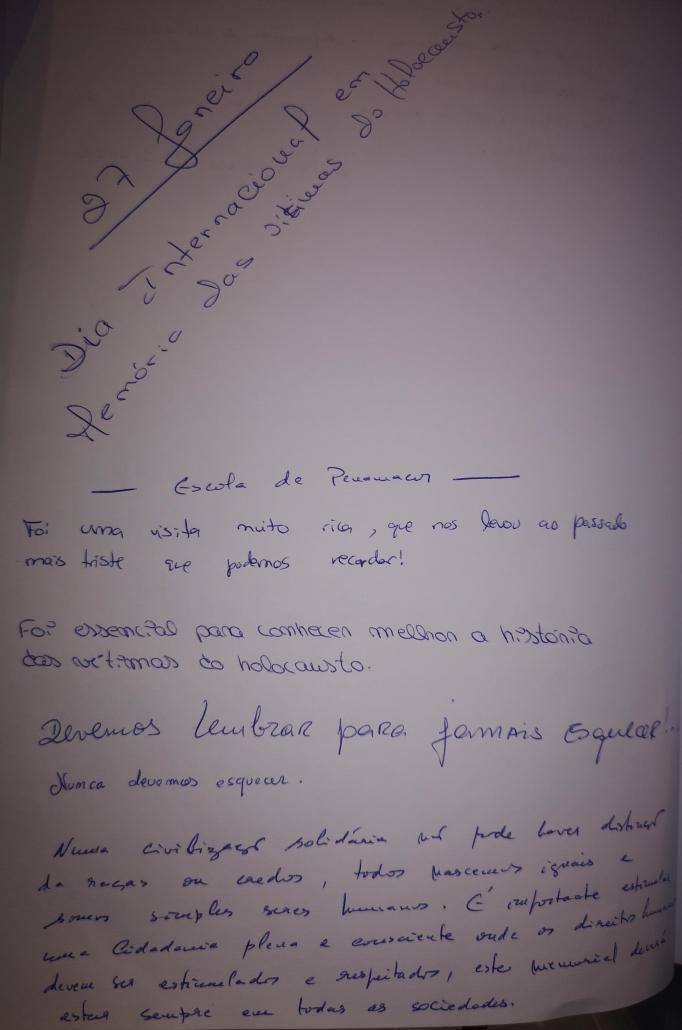 27 Janeiro
Dia Internacional em
Memória das vítimas do Holocausto.
— Escola de Penamacor —
Foi uma visita muito rica, que nos levou ao passado
mais triste que podemos recordar!
Foi essencital para conhecer melhor a história
das vítimas do holocausto.
Devemos lembrar para jamais esquecer!...
Nunca devemos esquecer.
Numa civilização solidária não pode haver distinção
de raças ou credos, todos nascemos iguais e
somos simples seres humanos. É importante estimular
uma cidadania plena e consciente onde os direitos humanos
devem ser estimulados e respeitados, este memorial deverá
estar sempre em todas as sociedades.